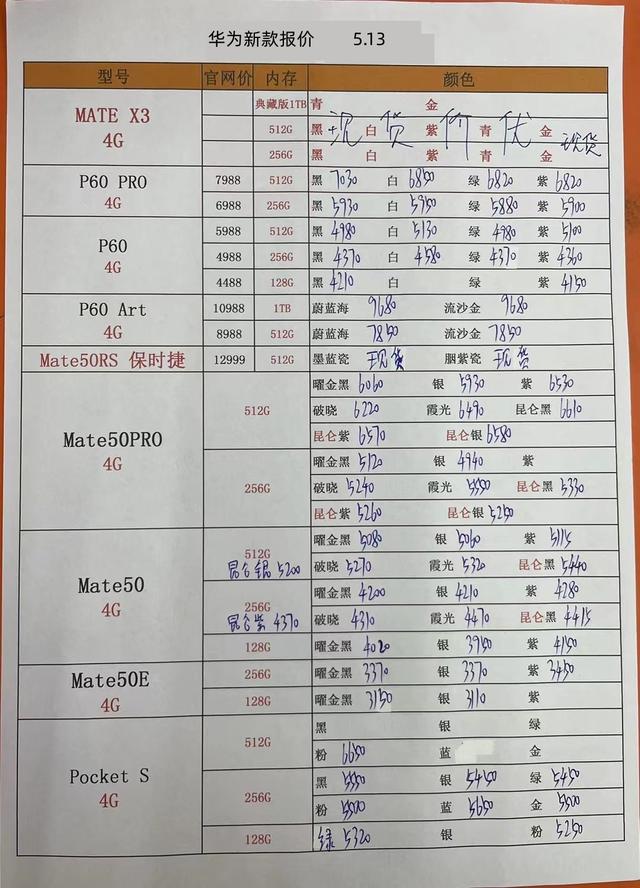 华为新款报价 5.13
型号 官网价 内存 颜色
MATE X3 4G
典藏版1TB 青 金
512G 黑 白 紫 青 金
现货价优
256G 黑 白 紫 青 金 现货
P60 PRO 4G
7988 512G 黑 7030 白 6850 绿 6820 紫 6820
6988 256G 黑 5930 白 5950 绿 5880 紫 5900
P60 4G
5988 512G 黑 4980 白 5130 绿 4980 紫 5100
4988 256G 黑 4370 白 4580 绿 4370 紫 4360
4488 128G 黑 4210 白 绿 紫 4150
P60 Art 4G
10988 1TB 蔚蓝海 9680 流沙金 9680
8988 512G 蔚蓝海 7850 流沙金 7850
Mate50RS 保时捷 12999 512G 墨蓝瓷 现货 胭紫瓷 现货
Mate50PRO 4G
512G 曜金黑 6060 银 5930 紫 6530
破晓 6220 霞光 6490 昆仑黑 6610
昆仑紫 6570 昆仑银 6580
256G 曜金黑 5120 银 4940 紫
破晓 5240 霞光 5550 昆仑黑 5330
昆仑紫 5260 昆仑银 5250
Mate50 4G
512G 曜金黑 5080 银 5060 紫 5115
昆仑银 5200 破晓 5270 霞光 5320 昆仑黑 5440
256G 曜金黑 4200 银 4210 紫 4280
昆仑紫 4370 破晓 4310 霞光 4470 昆仑黑 4415
128G 曜金黑 4020 银 3950 紫 4150
Mate50E 4G
256G 曜金黑 3370 银 3370 紫 3450
128G 曜金黑 3150 银 3110 紫
Pocket S 4G
512G 黑 银 绿
粉 6650 蓝 金
256G 黑 5550 银 5450 绿 5450
粉 5500 蓝 5650 金 5500
128G 绿 5320 银 粉 5250